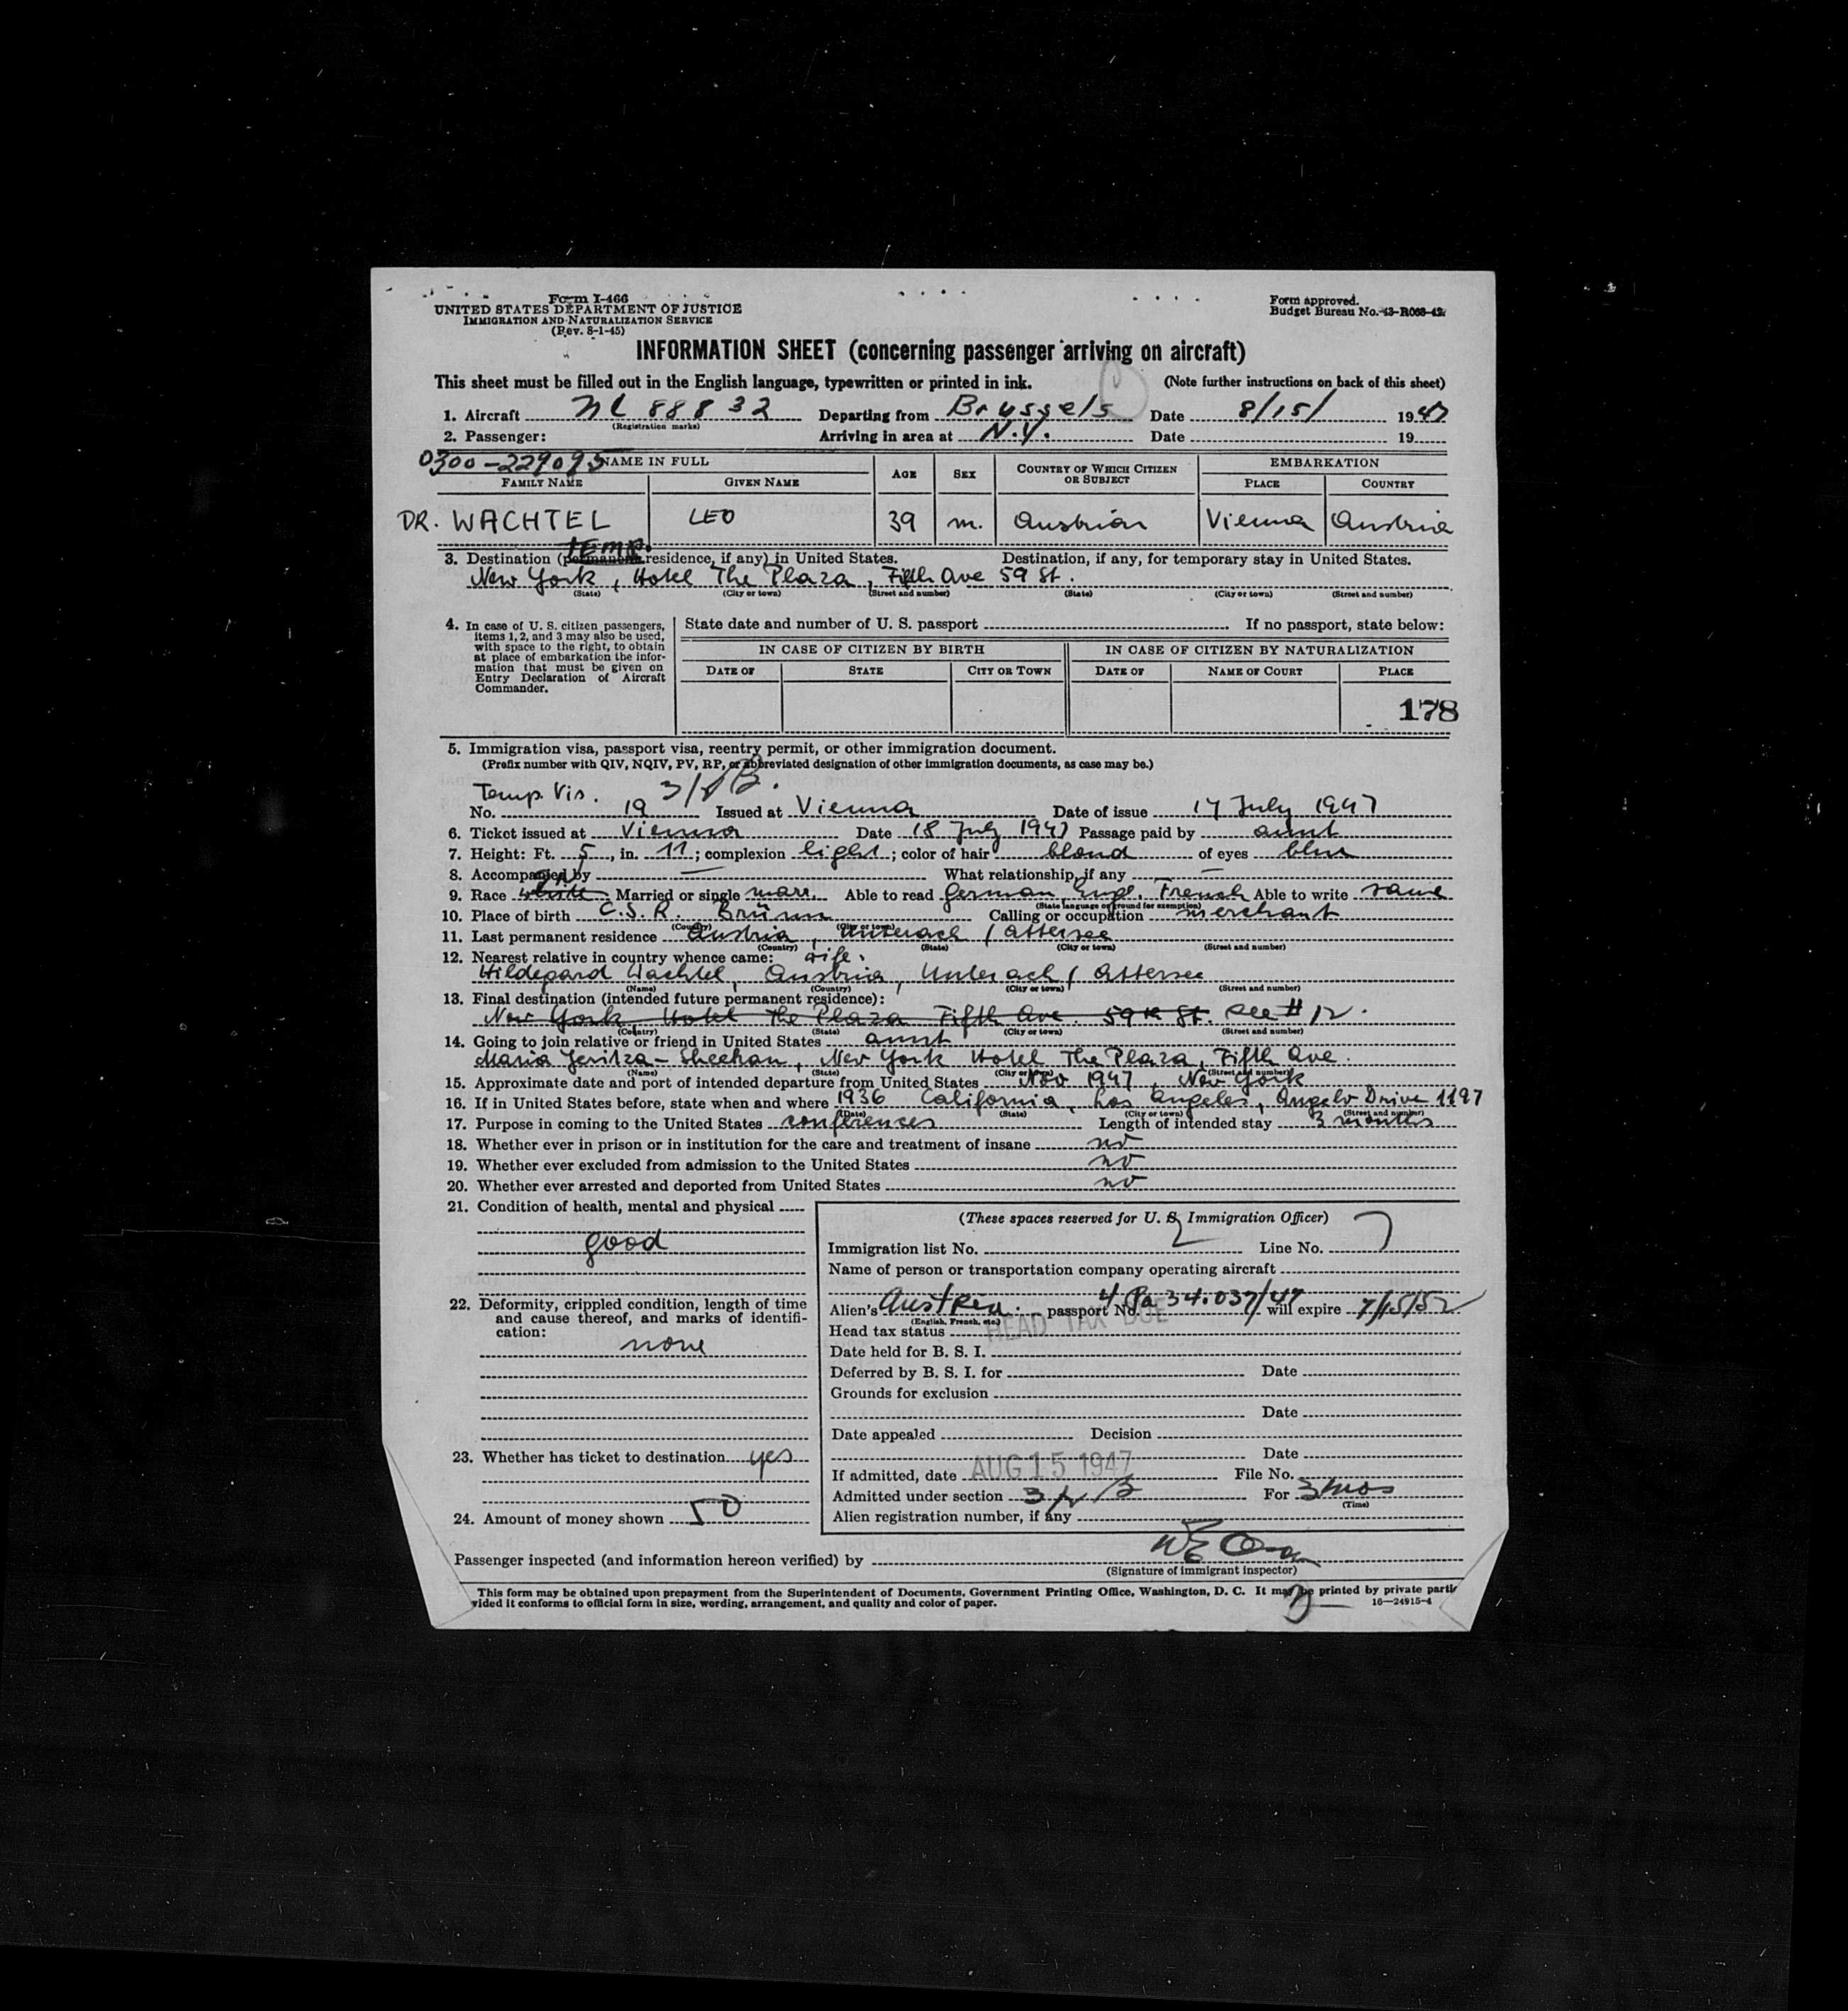 Form I-466
UNITED STATES DEPARTMENT OF JUSTICE
IMMIGRATION AND NATURALIZATION SERVICE
(Rev. 8-1-45)
Form approved.
Budget Bureau No. 43-R068-42.
INFORMATION SHEET (concerning passenger arriving on aircraft)
This sheet must be filled out in the English language, typewritten or printed in ink. (Note further instructions on back of this sheet)
1. Aircraft NC 88832 Departing from Brussels Date 8/15/ 1947
(Registration marks)
2. Passenger: Arriving in area at N.Y. Date 19
0300-229095 NAME IN FULL AGE SEX COUNTRY OF WHICH CITIZEN OR SUBJECT EMBARKATION
FAMILY NAME GIVEN NAME PLACE COUNTRY
DR. WACHTEL LEO 39 m. Austrian Vienna Austria
temp.
3. Destination (permanent residence, if any) in United States. Destination, if any, for temporary stay in United States.
New York, Hotel The Plaza, Fifth Ave 59 St.
(State) (City or town) (Street and number) (State) (City or town) (Street and number)
4. In case of U. S. citizen passengers, items 1, 2, and 3 may also be used, with space to the right, to obtain at place of embarkation the information that must be given on Entry Declaration of Aircraft Commander.
State date and number of U. S. passport If no passport, state below:
IN CASE OF CITIZEN BY BIRTH IN CASE OF CITIZEN BY NATURALIZATION
DATE OF STATE CITY OR TOWN DATE OF NAME OF COURT PLACE
178
5. Immigration visa, passport visa, reentry permit, or other immigration document.
(Prefix number with QIV, NQIV, PV, RP, or abbreviated designation of other immigration documents, as case may be.)
Temp. Vis. 3/2/B.
No. 19 Issued at Vienna Date of issue 17 July 1947
6. Ticket issued at Vienna Date 18 July 1947 Passage paid by aunt
7. Height: Ft. 5, in. 11; complexion light; color of hair blond of eyes blue
8. Accompanied by — What relationship, if any —
9. Race white Married or single marr. Able to read German, Engl. French Able to write same
(State language or ground for exemption)
10. Place of birth C.S.R. Brünn Calling or occupation merchant
(Country) (City or town)
11. Last permanent residence Austria, Unterach / Attersee
(Country) (State) (City or town) (Street and number)
12. Nearest relative in country whence came: wife:
Hildegard Wachtel, Austria, Unterach / Attersee
(Name) (Country) (City or town) (Street and number)
13. Final destination (intended future permanent residence):
New York Hotel The Plaza Fifth Ave. 59th St. see #12.
(Country) (State) (City or town) (Street and number)
14. Going to join relative or friend in United States aunt
Maria Jeritza-Sheehan, New York Hotel The Plaza, Fifth Ave.
(Name) (State) (City or town) (Street and number)
15. Approximate date and port of intended departure from United States Nov 1947, New York
16. If in United States before, state when and where 1936 California, Los Angeles, Angelo Drive 1197
(Date) (State) (City or town) (Street and number)
17. Purpose in coming to the United States conferences Length of intended stay 3 months
18. Whether ever in prison or in institution for the care and treatment of insane no
19. Whether ever excluded from admission to the United States no
20. Whether ever arrested and deported from United States no
21. Condition of health, mental and physical
good
22. Deformity, crippled condition, length of time and cause thereof, and marks of identification:
none
23. Whether has ticket to destination yes
24. Amount of money shown 50
(These spaces reserved for U. S. Immigration Officer)
Immigration list No. 2 Line No. 7
Name of person or transportation company operating aircraft
Alien's Austria. passport No. 4 Pa 34.037/47 will expire 7/15/52
(English, French, etc.)
Head tax status HEAD TAX DUE
Date held for B. S. I.
Deferred by B. S. I. for Date
Grounds for exclusion
Date
Date appealed Decision
Date
If admitted, date AUG 15 1947 File No.
Admitted under section 3/2/B For 3 mos
(Time)
Alien registration number, if any
Passenger inspected (and information hereon verified) by
(Signature of immigrant inspector)
This form may be obtained upon prepayment from the Superintendent of Documents, Government Printing Office, Washington, D. C. It may be printed by private
vided it conforms to official form in size, wording, arrangement, and quality and color of paper. 16—24915-4